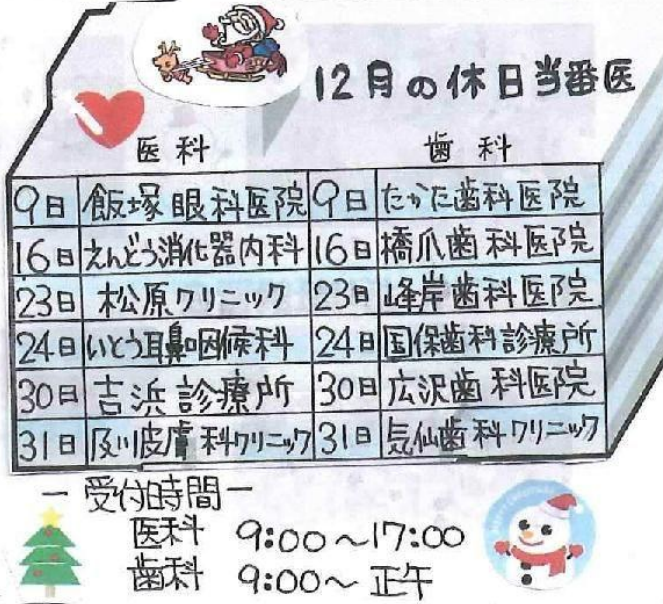 12月の休日当番医
医科 歯科
9日 飯塚眼科医院 9日 たかた歯科医院
16日 えんどう消化器内科 16日 橋爪歯科医院
23日 松原クリニック 23日 峰岸歯科医院
24日 いとう耳鼻咽候科 24日 国保歯科診療所
30日 吉浜診療所 30日 広沢歯科医院
31日 及川皮膚科クリニック 31日 気仙歯科クリニック
－受付時間－
医科 9:00～17:00
歯科 9:00～正午